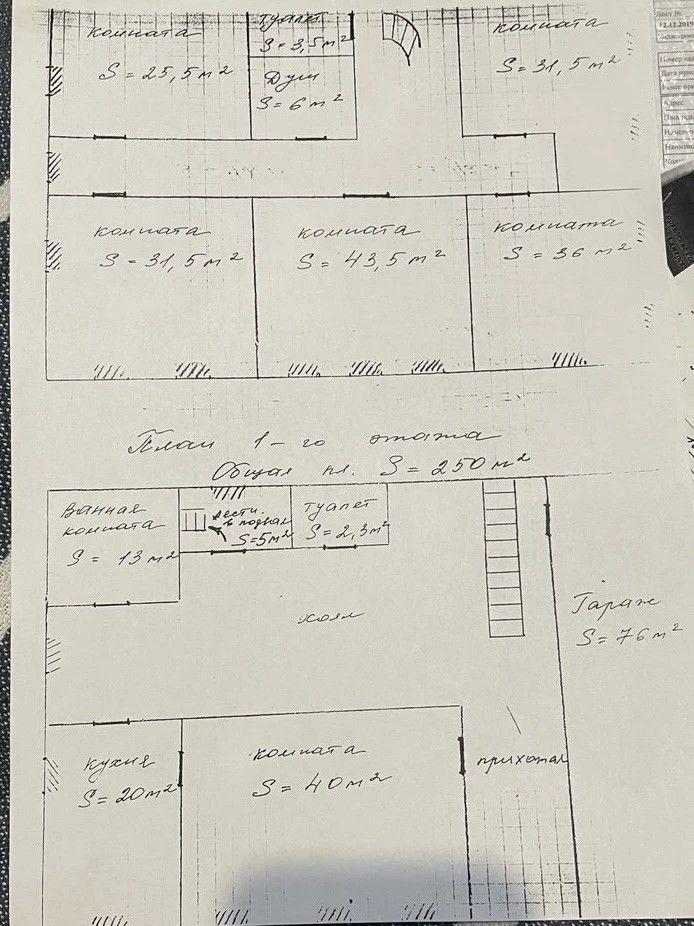 комната
S = 25,5 м²
туалет
S = 3,5 м²
Душ
S = 6 м²
комната
S = 31,5 м²
комната
S = 31,5 м²
комната
S = 43,5 м²
комната
S = 36 м²
План 1-го этажа
Общая пл. S = 250 м²
Ванная
комната
S = 13 м²
лестн.
в подвал
S = 5 м²
туалет
S = 2,3 м²
холл
Гараж
S = 76 м²
кухня
S = 20 м²
комната
S = 40 м²
прихожая
12.12.2019
Адрес